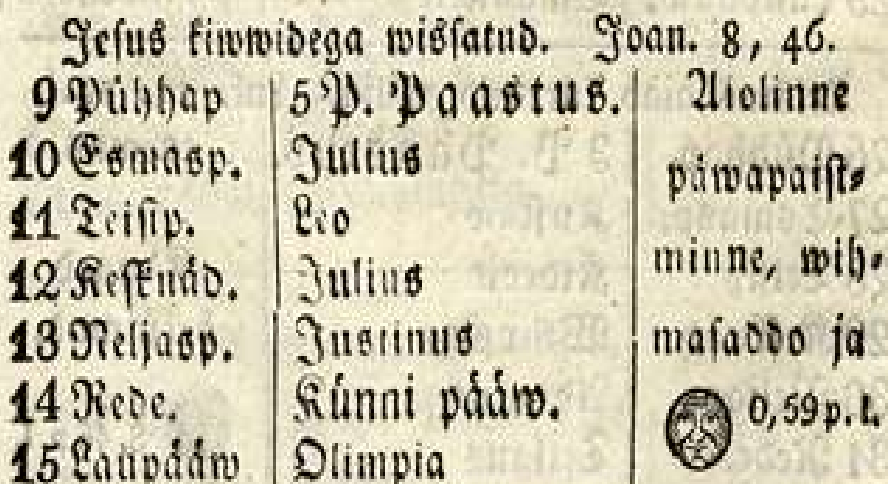 Jesus kiwwidega wissatud. Joan. 8, 46.
9 Pühhap 5 P. Paastus. Aiolinne
10 Esmasp. Julius päwapaist-
11 Teisip. Leo
12 Kesknäd. Julius minne, wih-
13 Neljasp. Justinus masaddo ja
14 Rede. Künni pääw. 0,59 p. l.
15 Laupääw Olimpia